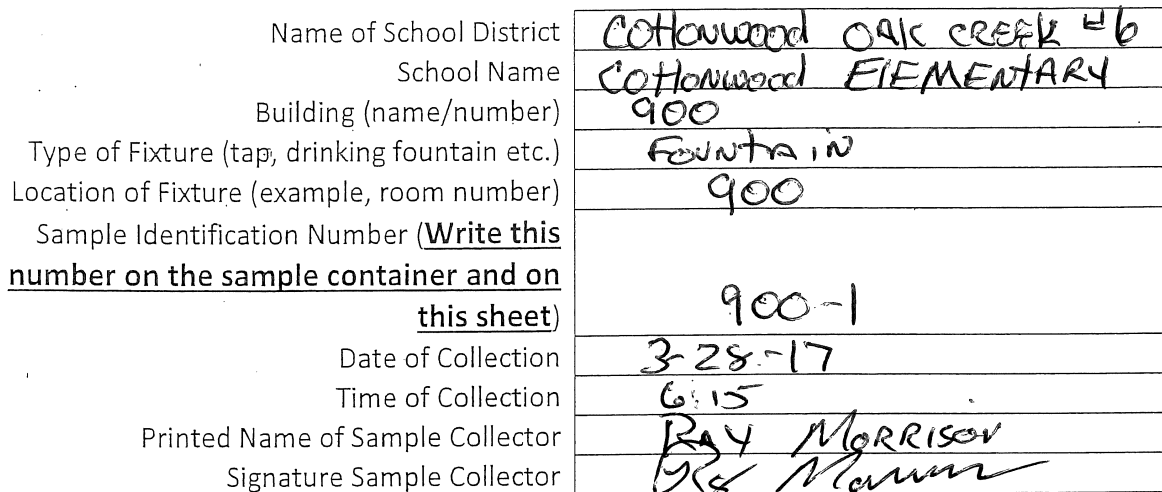 Name of School District COttONWOOd OAK CREEK #6
School Name COttONWOOd ElEMENtARY
Building (name/number) 900
Type of Fixture (tap, drinking fountain etc.) FOUNtAiN
Location of Fixture (example, room number) 900
Sample Identification Number (Write this
number on the sample container and on
this sheet) 900-1
Date of Collection 3-28-17
Time of Collection 6:15
Printed Name of Sample Collector RAY MORRISON
Signature Sample Collector